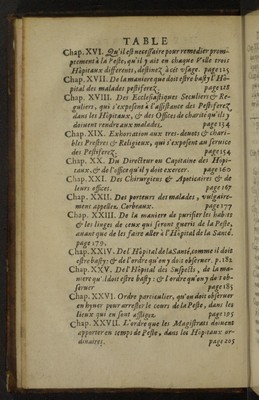 TABLE
Chap. XVI. Qu'il est necessaire pour remedier prom-
ptement à la Peste, qu'il y ait en chaque Ville trois
Hôpitaux differents, destinez à cet vsage. page 115
Chap. XVII. De la maniere que doit estre basty l'Hô-
pital des malades pestiferez. page 128
Chap. XVIII. Des Ecclesiastiques Seculiers & Re-
guliers, qui s'exposent à l'assistance des Pestiferez
dans les Hôpitaux, & des Offices de charité qu'ils y
doiuent rendre aux malades. page 134
Chap. XIX. Exhortation aux tres-deuots & chari-
bles Prestres & Religieux, qui s'exposent au seruice
des Pestiferez. page 154
Chap. XX. Du Directeur ou Capitaine des Hôpi-
taux, & de l'office qu'il y doit exercer. page 160
Chap. XXI. Des Chirurgiens & Apoticaires & de
leurs offices. page 167
Chap. XXII. Des porteurs des malades, vulgaire-
ment appellez Corbeaux. page 177
Chap. XXIII. De la maniere de purifier les habits
& les linges de ceux qui seront gueris de la Peste,
auant que de les faire aller à l'Hôpital de la Santé.
page 179.
Chap. XXIV. De l'Hôpital de la Santé, comme il doit
estre basty: & de l'ordre qu'on y doit obseruer. p. 182
Chap. XXV. De l'Hôpital des Suspects, de la ma-
niere qu'il doit estre basty: & l'ordre qu'on y doit ob-
seruer page 185
Chap. XXVI. Ordre particulier, qu'on doit obseruer
en hyuer pour arrester le cours de la Peste, dans les
lieux qui en sont affligez. page 195
Chap. XXVII. L'ordre que les Magistrats doiuent
apporter en temps de Peste, dans les Hôpitaux or-
dinaires. page 205